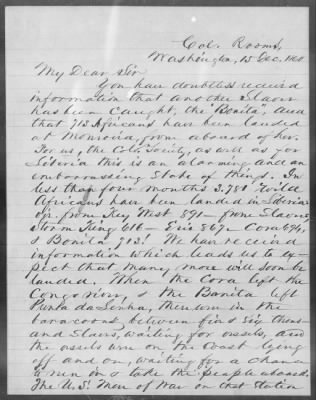 Col. Rooms,
Washington, 15 Dec. 1860.
My Dear Sir
You have doubtless received
information that another Slaver
has been caught, the "Bonita", and
that 713 Africans have been landed
at Monrovia, from aboard of her.
For us, the Col. Society, as well as for
Liberia this is an alarming and an
embarrassing State of things. In
less than four months 3.781 Wild
Africans have been landed in Liberia:
viz. from Key West 891 - from Slavers,
Storm King 616 - Erie 867 - Cora 694,
& Bonita 713! We have received
information which leads us to ex-
pect that many more will soon be
landed. When the Cora left the
Congo river, & the Bonita left
Punta da Lenha, there were in the
baracoons between five & six thous-
and Slaves, waiting for vessels, and
the vessels were on the Coast lying
off and on, waiting for a chance
to run in & take the people aboard.
The U.S. Men of War on that Station